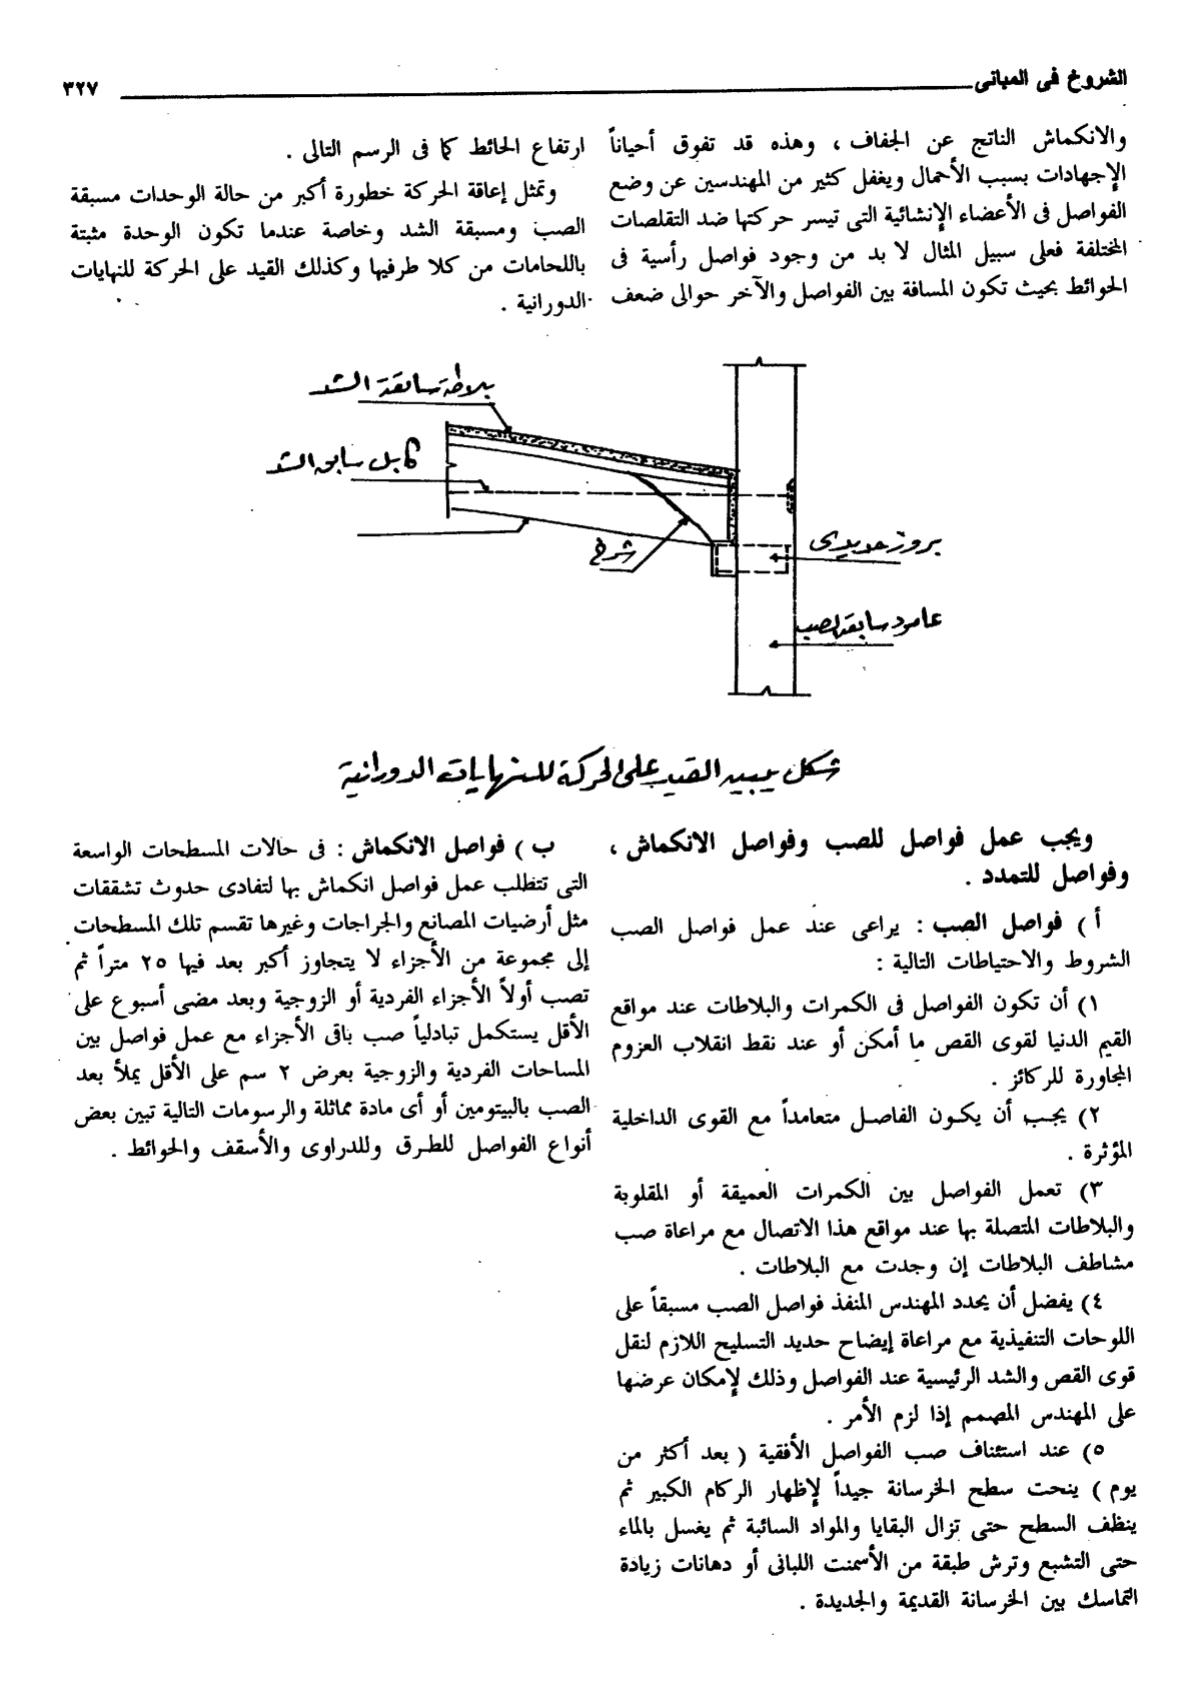 الشروخ فى المبانى
٣٢٧
والانكماش الناتج عن الجفاف ، وهذه قد تفوق أحياناً
الإجهادات بسبب الأحمال ويغفل كثير من المهندسين عن وضع
الفواصل فى الأعضاء الإنشائية التى تيسر حركتها ضد التقلصات
المختلفة فعلى سبيل المثال لا بد من وجود فواصل رأسية فى
الحوائط بحيث تكون المسافة بين الفواصل والآخر حوالى ضعف
ارتفاع الحائط كما فى الرسم التالى .
وتمثل إعاقة الحركة خطورة أكبر من حالة الوحدات مسبقة
الصب ومسبقة الشد وخاصة عندما تكون الوحدة مثبتة
باللحامات من كلا طرفيها وكذلك القيد على الحركة للنهايات
الدورانية .
بلاطة سابقة الشد
كابل سابق الشد
شرخ
بروز حديدى
عامود سابق الصب
شكل يبين القيد على الحركة للنهايات الدورانية
ويجب عمل فواصل للصب وفواصل الانكماش ،
وفواصل للتمدد .
أ ) فواصل الصب : يراعى عند عمل فواصل الصب
الشروط والاحتياطات التالية :
١) أن تكون الفواصل فى الكمرات والبلاطات عند مواقع
القيم الدنيا لقوى القص ما أمكن أو عند نقط انقلاب العزوم
المجاورة للركائز .
٢) يجب أن يكون الفاصل متعامداً مع القوى الداخلية
المؤثرة .
٣) تعمل الفواصل بين الكمرات العميقة أو المقلوبة
والبلاطات المتصلة بها عند مواقع هذا الاتصال مع مراعاة صب
مشاطف البلاطات إن وجدت مع البلاطات .
٤) يفضل أن يحدد المهندس المنفذ فواصل الصب مسبقاً على
اللوحات التنفيذية مع مراعاة إيضاح حديد التسليح اللازم لنقل
قوى القص والشد الرئيسية عند الفواصل وذلك لإمكان عرضها
على المهندس المصمم إذا لزم الأمر .
٥) عند استئناف صب الفواصل الأفقية ( بعد أكثر من
يوم ) ينحت سطح الخرسانة جيداً لإظهار الركام الكبير ثم
ينظف السطح حتى تزال البقايا والمواد السائبة ثم يغسل بالماء
حتى التشبع وترش طبقة من الأسمنت اللبانى أو دهانات زيادة
التماسك بين الخرسانة القديمة والجديدة .
ب ) فواصل الانكماش : فى حالات المسطحات الواسعة
التى تتطلب عمل فواصل انكماش بها لتفادى حدوث تشققات
مثل أرضيات المصانع والجراجات وغيرها تقسم تلك المسطحات
إلى مجموعة من الأجزاء لا يتجاوز أكبر بعد فيها ٢٥ متراً ثم
تصب أولاً الأجزاء الفردية أو الزوجية وبعد مضى أسبوع على
الأقل يستكمل تبادلياً صب باقى الأجزاء مع عمل فواصل بين
المساحات الفردية والزوجية بعرض ٢ سم على الأقل يملأ بعد
الصب بالبيتومين أو أى مادة مماثلة والرسومات التالية تبين بعض
أنواع الفواصل للطرق وللدراوى والأسقف والحوائط .